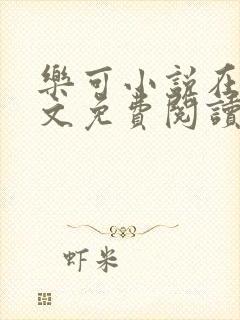 樂可小說在
文免費閱讀
虾米